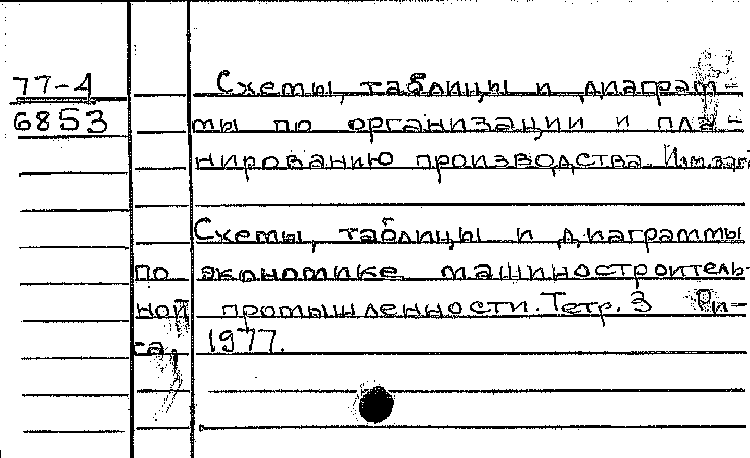 77-4
6853
Схемы, таблицы и диаграм-
мы по организации и пла-
нированию производства. Изм. заг
Схемы, таблицы и диаграммы
по экономике машинострои­тель-
ной промышленности. Тетр. 3 Ри-
га, 1977.